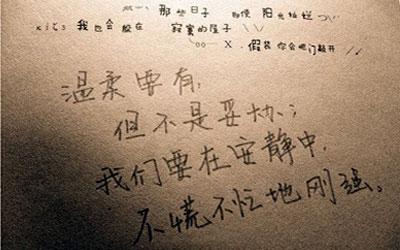 那些日子 即使 阳光灿烂
我也会躲在 寂寞的屋子
X. 假装你会把门敲开
温柔要有,
但不是妥协;
我们要在安静中,
不慌不忙地刚强。